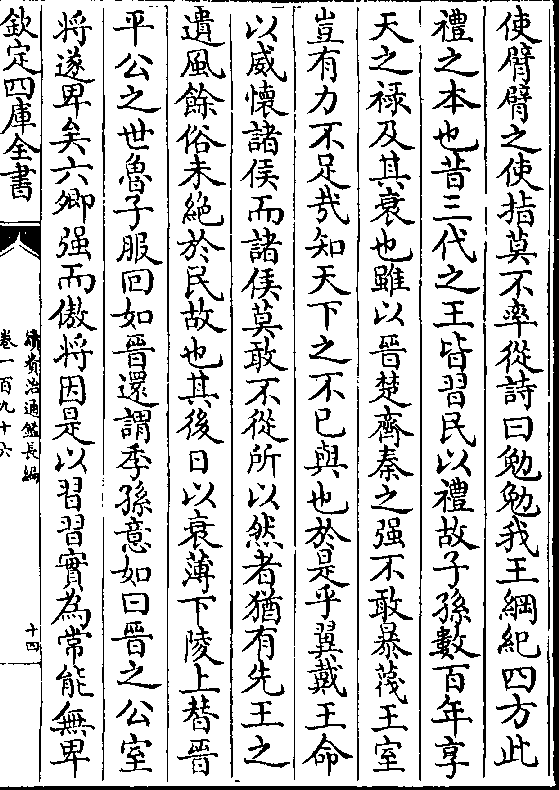 使臂臂之使指莫不率從詩曰勉勉我王綱紀四方此
禮之本也昔三代之王皆習民以禮故子孫數百年享
天之禄及其衰也雖以晉楚齊秦之强不敢暴蔑王室
豈有力不足㢤知天下之不已與也於是乎翼戴王命
以威懷諸侯而諸侯莫敢不從所以然者猶有先王之
遺風餘俗未絶於民故也其後日以衰薄下陵上替晉
平公之世魯子服回如晉還謂季孫意如曰晉之公室
将遂卑矣六卿强而傲将因是以習習實為常能無卑
欽定四庫全書
續資治通鑑長編
卷一百九十六
十四